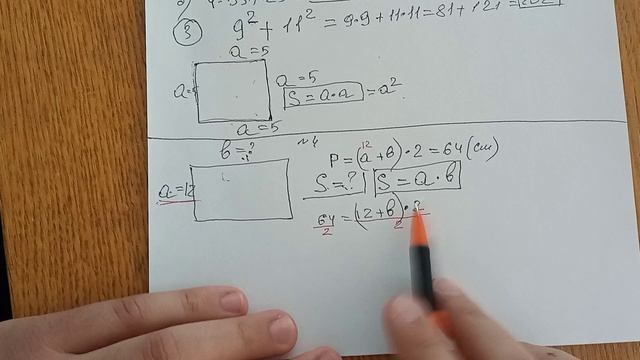 3 9² + 11² = 9·9 + 11·11 = 81 + 121 = 202
a = 5
a = 5
a = 5
S = a·a = a²
a = 5
№4
b = ?
12
P = (a + b)·2 = 64 (см)
a = 12
S = ? S = a·b
64 = (12 + b)·2
2 2